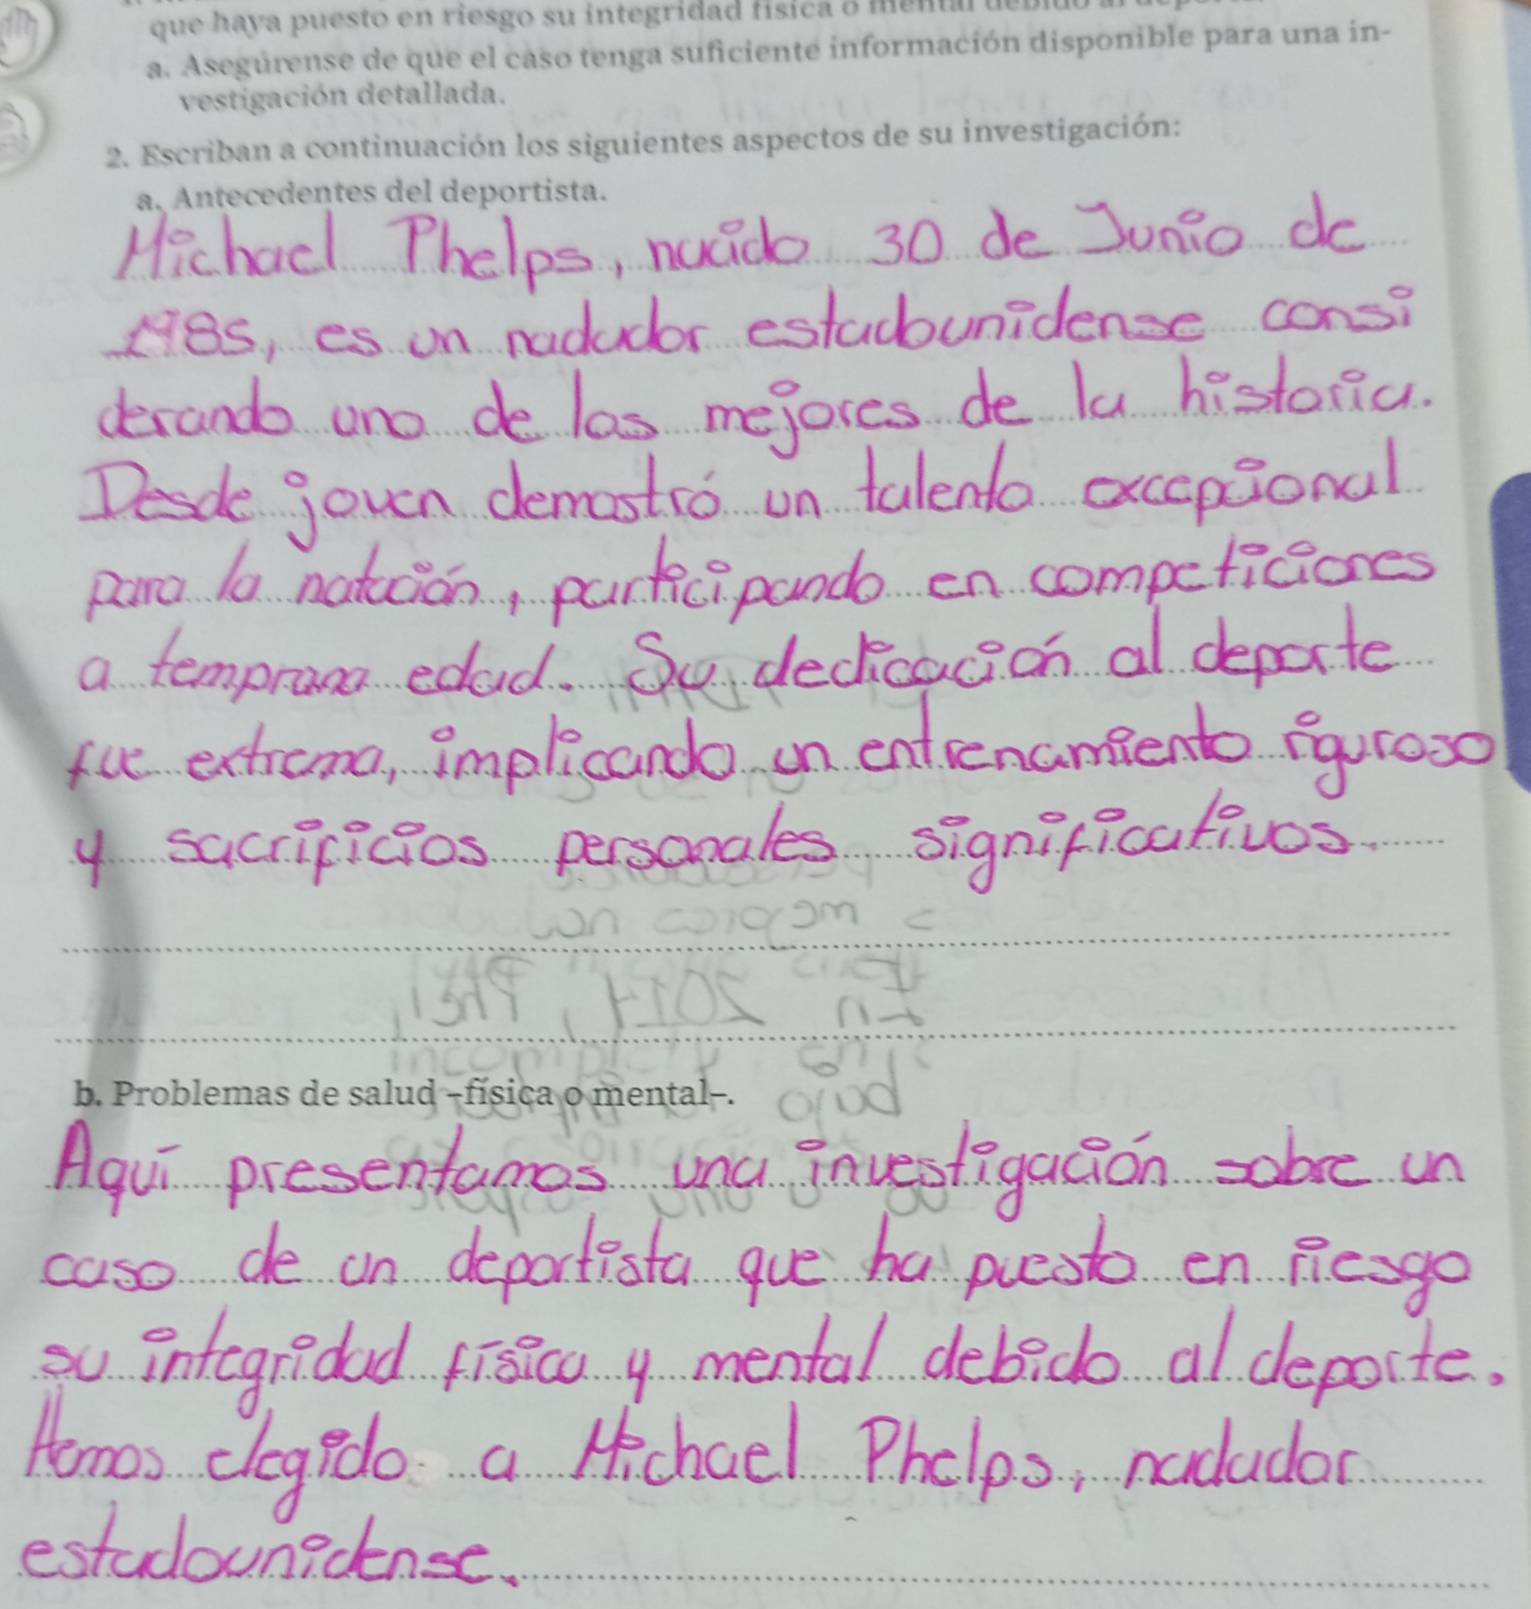 que haya puesto en riesgo su integridad física o mental debido al
a. Asegúrense de que el caso tenga suficiente información disponible para una in-
vestigación detallada.
2. Escriban a continuación los siguientes aspectos de su investigación:
a. Antecedentes del deportista.
Michael Phelps, nacido 30 de Junio de
1985, es un nadador estadounidense consi
derando uno de los mejores de la historia.
Desde joven demostró un talento excepcional
para la natación, participando en competiciones
a temprana edad. Su dedicación al deporte
fue extrema, implicando un entrenamiento riguroso
y sacrificios personales significativos.
b. Problemas de salud –física o mental–.
Aquí presentamos una investigación sobre un
caso de un deportista que ha puesto en riesgo
su integridad física y mental debido al deporte.
Hemos elegido a Michael Phelps, nadador
estadounidense.